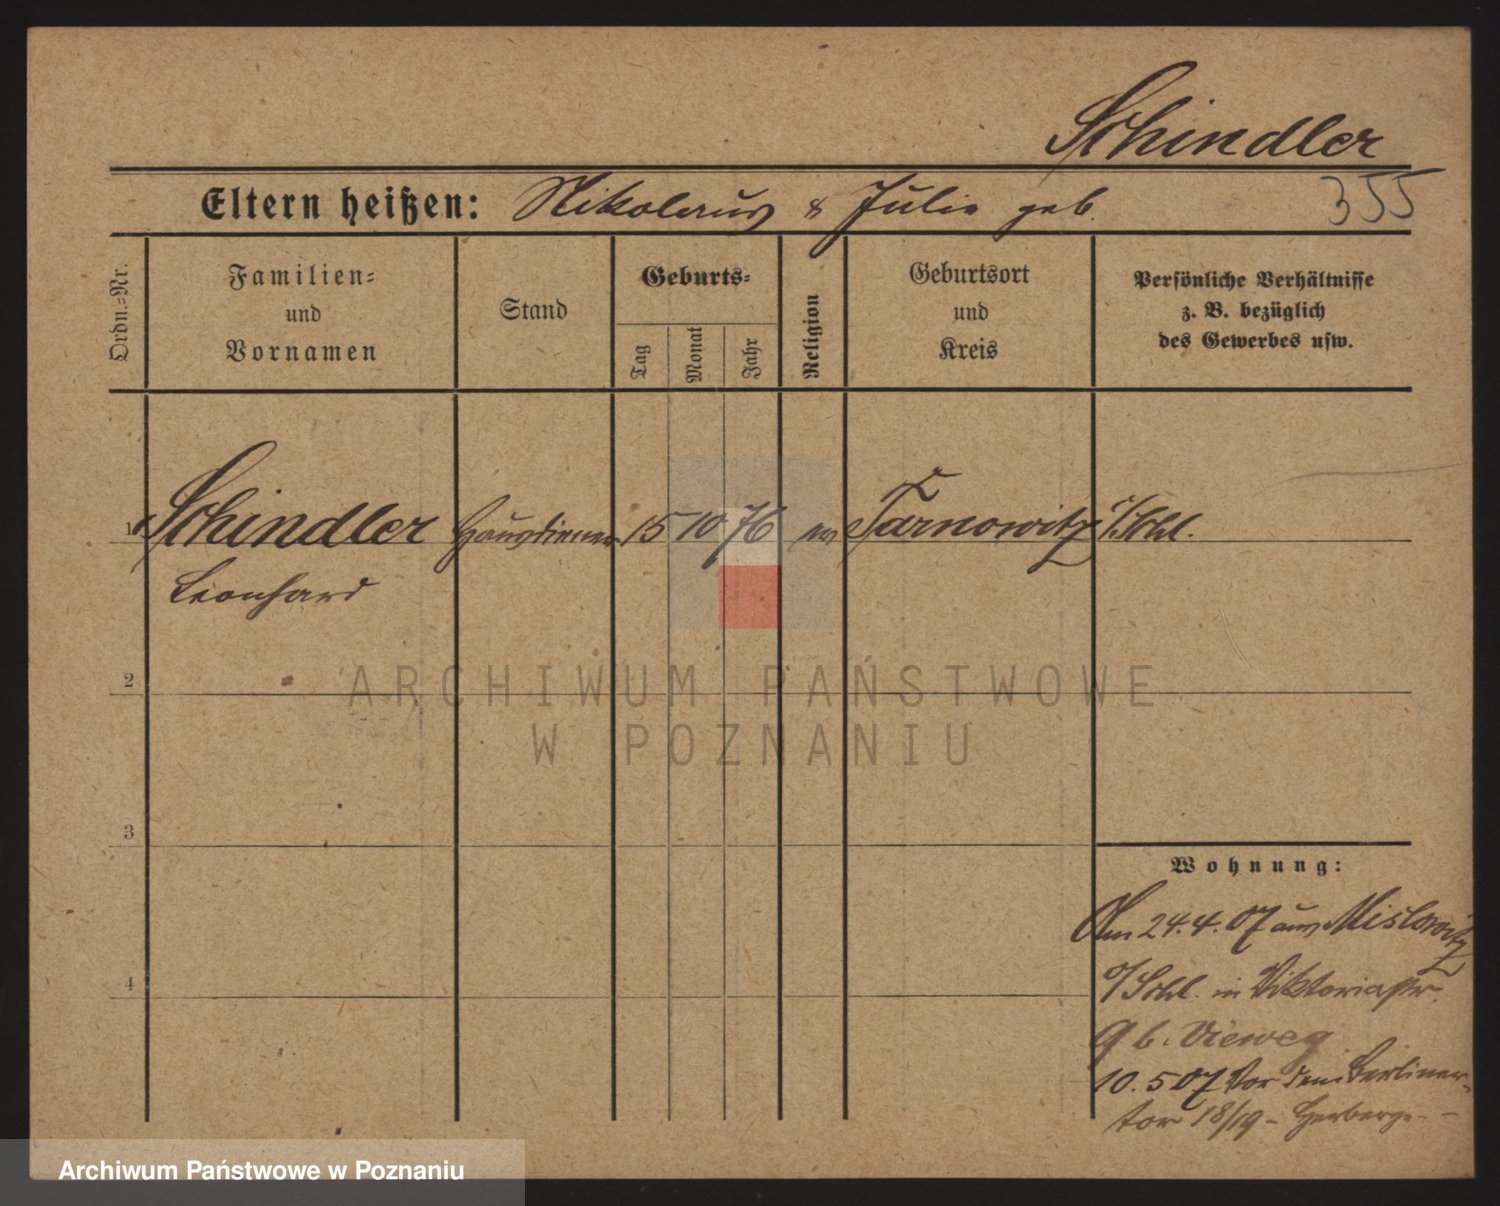 Schindler
Eltern heißen: Nikolaus & Julie geb.
355
Ordn.=Nr.
Familien= und Vornamen
Stand
Geburts=
Tag
Monat
Jahr
Religion
Geburtsort und Kreis
Persönliche Verhältnisse
z. B. bezüglich
des Gewerbes usw.
1 Schindler Hausdiener 15 10 76 Tarnowitz /Schl.
Leonhard
2
ARCHIWUM PAŃSTWOWE
W POZNANIU
3
Wohnung:
Am 24.4.07 aus Mislowitz
o/Schl. in Viktoriastr.
9 b. Vieweg
4
10.5 07 Vor dem Berliner-
tor 18/19 - Herberge -
Archiwum Państwowe w Poznaniu